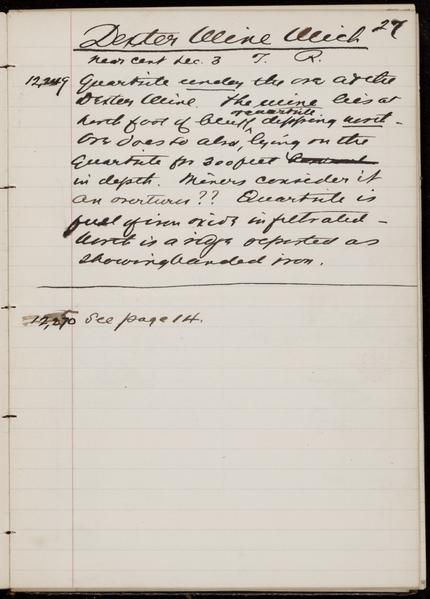 27
Dexter Mine Mich
near cent Sec. 3 T. R.
12,249 Quartzite under the ore at the
Dexter Mine. The mine lies at
north foot of bluff quartzite dipping north -
Ore does so also, lying on the
Quartzite for 300 feet
in depth. Miners consider it
an overturn?? Quartzite is
full of iron oxide infiltrated -
North is a ridge reported as
showing banded iron.
12,250 See page 14.